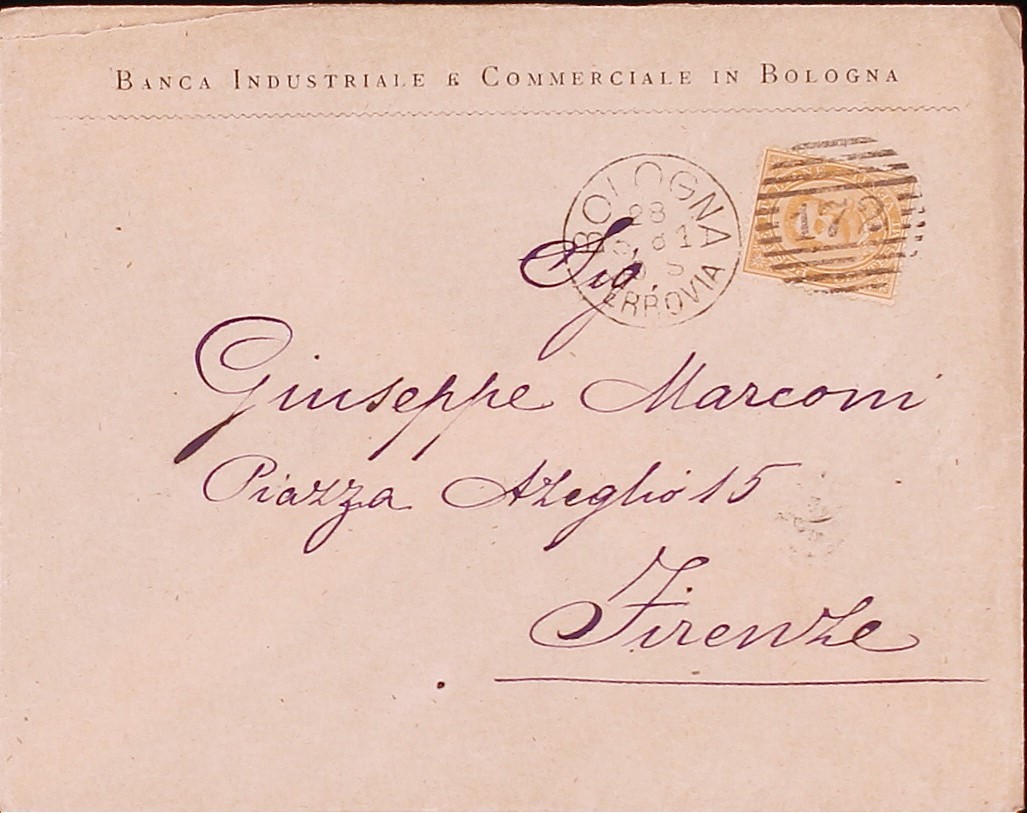 BANCA INDUSTRIALE E COMMERCIALE IN BOLOGNA
BOLOGNA
28
81
FERROVIA
Sig.
Giuseppe Marconi
Piazza Azeglio 15
Firenze